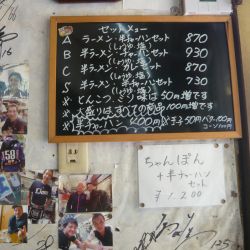 セットメニュー
A ラーメン・半チャーハンセット 870
(しょうゆ・塩)
B 半ラーメン・チャーハンセット 930
(しょうゆ・塩)
C 半ラーメン・カレーセット 870
(しょうゆ・塩)
S 半ラーメン・半チャーハンセット 730
(しょうゆ・塩)
※とんこつ、ミソ味は50円増です
※大盛りはすべての商品100円増です
※半チャーハン400円 ※玉子50円バター100円
コーン100円
ちゃんぽん
+半チャーハン
セット
¥1,200
125